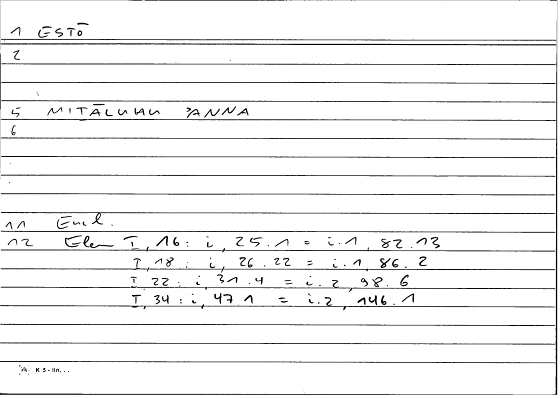 1 ESTŌ
2
5 MITĀLUHU ʔANNA
6
11 Eucl.
12 Elem I, 16: i, 25.1 = i.1, 82.13
I, 18: i, 26.22 = i.1, 86.2
I, 22: i, 31.4 = i.2, 98.6
I, 34: i, 47.1 = i.2, 146.1